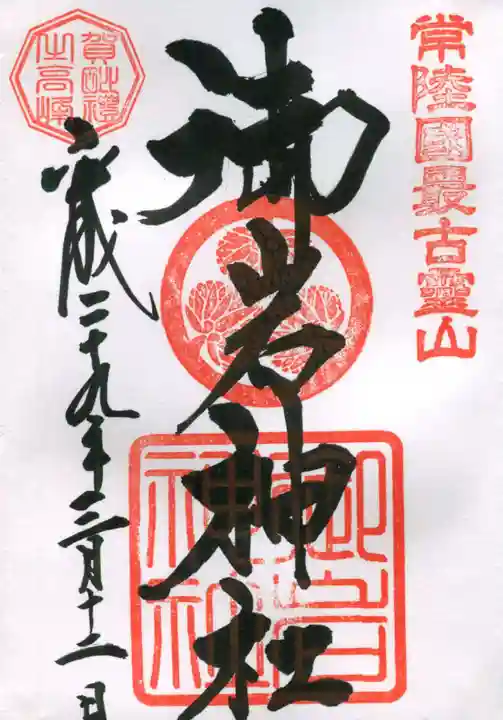 常陸國最古霊山
御岩神社
御岩神社
賀毗禮之高峰
平成二十九年三月十二日